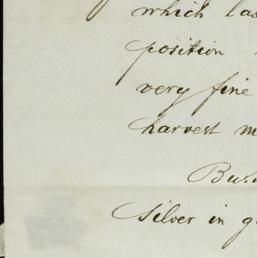 which las
position
very fine
harvest m
Bus
silver in g